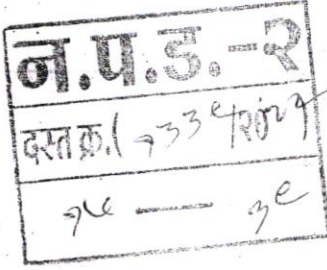 न.प.ड.-२
दस्त क्र.( १३३९/२०२१)
१५ — ३९